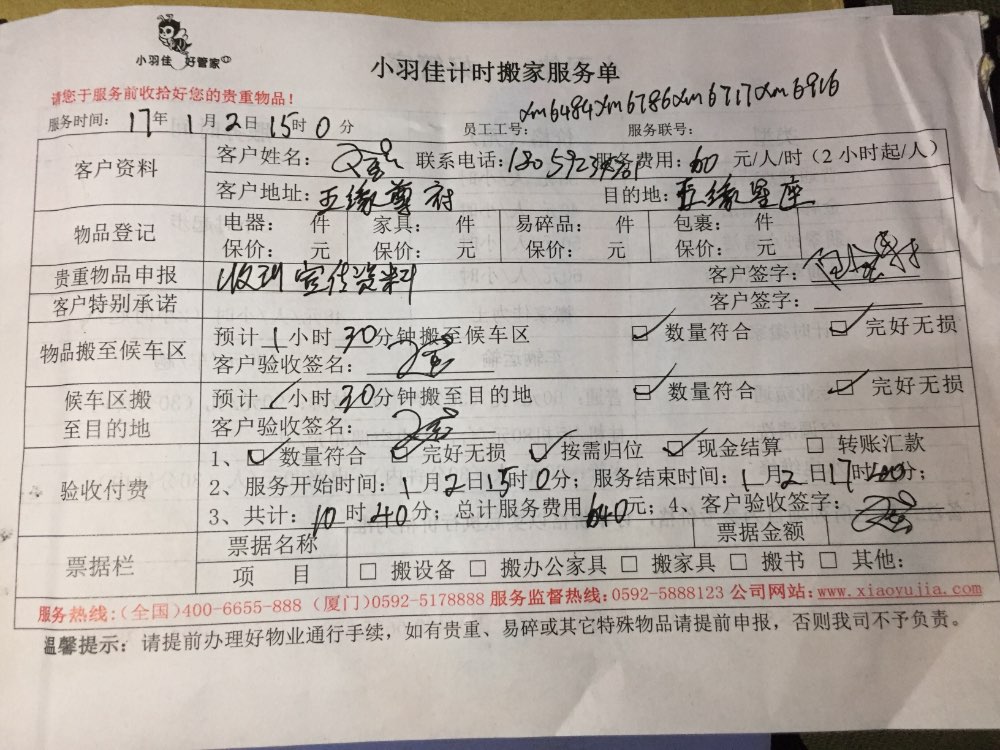 小羽佳 好管家
小羽佳计时搬家服务单
请您于服务前收拾好您的贵重物品！
xm6484xm6786xm6717xm6916
服务时间：17年1月2日15时0分 员工工号： 服务联号：
客户资料 客户姓名： 联系电话： 服务费用：60元/人/时（2小时起/人）
客户地址：五缘尊府 目的地：五缘星座
物品登记 电器： 件 家具： 件 易碎品： 件 包裹： 件
保价： 元 保价： 元 保价： 元 保价： 元
贵重物品申报 收到宣传资料 客户签字：
客户特别承诺 客户签字：
物品搬至候车区 预计1小时30分钟搬至候车区 数量符合 完好无损
客户验收签名：
候车区搬至目的地 预计 小时30分钟搬至目的地 数量符合 完好无损
客户验收签名：
验收付费 1、数量符合 完好无损 按需归位 现金结算 转账汇款
2、服务开始时间：1月2日15时0分；服务结束时间：1月2日17时 分；
3、共计：10时40分；总计服务费用640元；4、客户验收签字：
票据栏 票据名称 票据金额
项 目 □ 搬设备 □ 搬办公家具 □ 搬家具 □ 搬书 □ 其他：
服务热线：（全国）400-6655-888（厦门）0592-5178888 服务监督热线：0592-5888123 公司网站：www.xiaoyujia.com
温馨提示：请提前办理好物业通行手续，如有贵重、易碎或其它特殊物品请提前申报，否则我司不予负责。